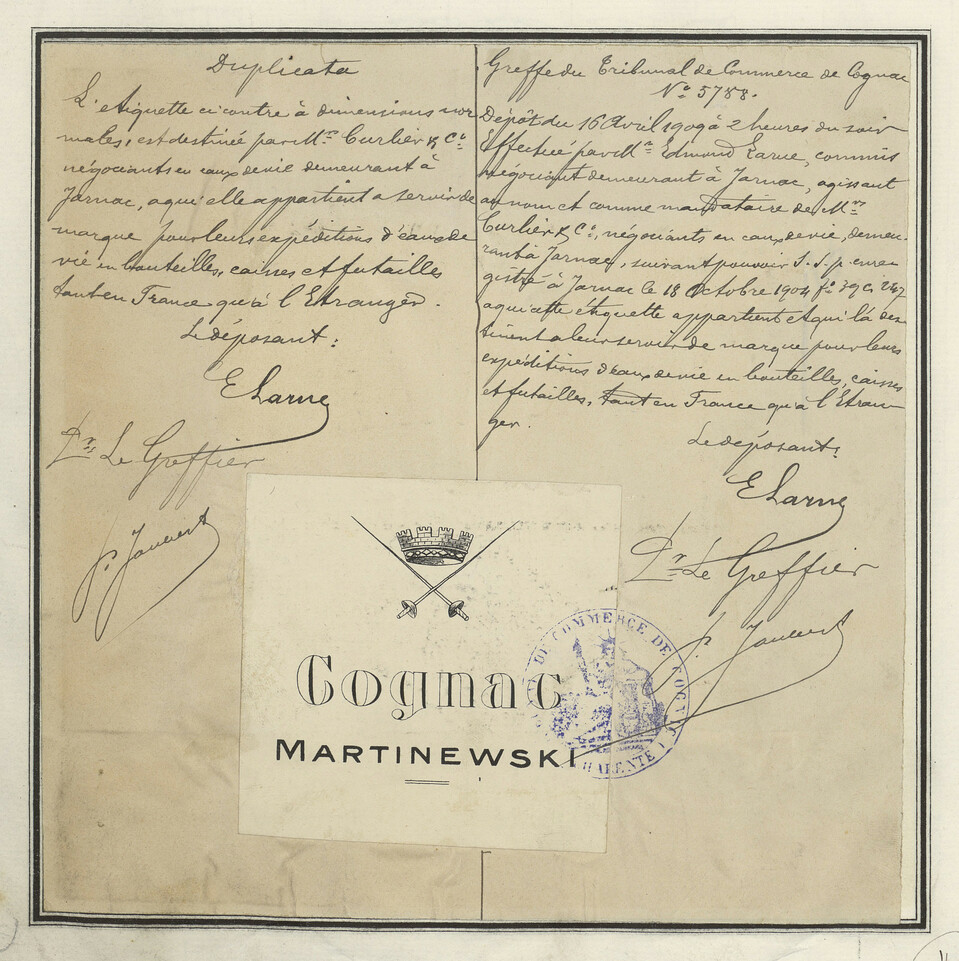 Duplicata
L'étiquette ci contre à dimensions nor
males, est destinée par Mrs Curlier & Co
négociants en eaux de vie demeurant à
Jarnac, à qui elle appartient a servir de
marque pour leurs expéditions d'eaux de
vie en bouteilles, caisses et futailles
tant en France qu'à l'Etranger.
Le déposant:
E Larue
Pr Le Greffier
Greffe du Tribunal de Commerce de Cognac
No 5788.
Dépôt du 16 Avril 1909 à 2 heures du soir
Effectué par Mr Edmond Larue, commis
négociant demeurant à Jarnac, agissant
au nom et comme mandataire de Mrs
Curlier & Co, négociants en eaux de vie, demeu-
rant à Jarnac, suivant pouvoir S.S.p. enre-
gistré à Jarnac le 18 Octobre 1904 fo 39 c
à qui cette étiquette appartient et qui la des-
tinent a leur servir de marque pour leurs
expéditions d'eaux de vie en bouteilles, caisses
et futailles, tant en France qu'à l'Etran-
ger.
Le déposant:
E Larue
Pr Le Greffier
Cognac
MARTINEWSKI
DE COMMERCE DE COGNAC
CHARENTE